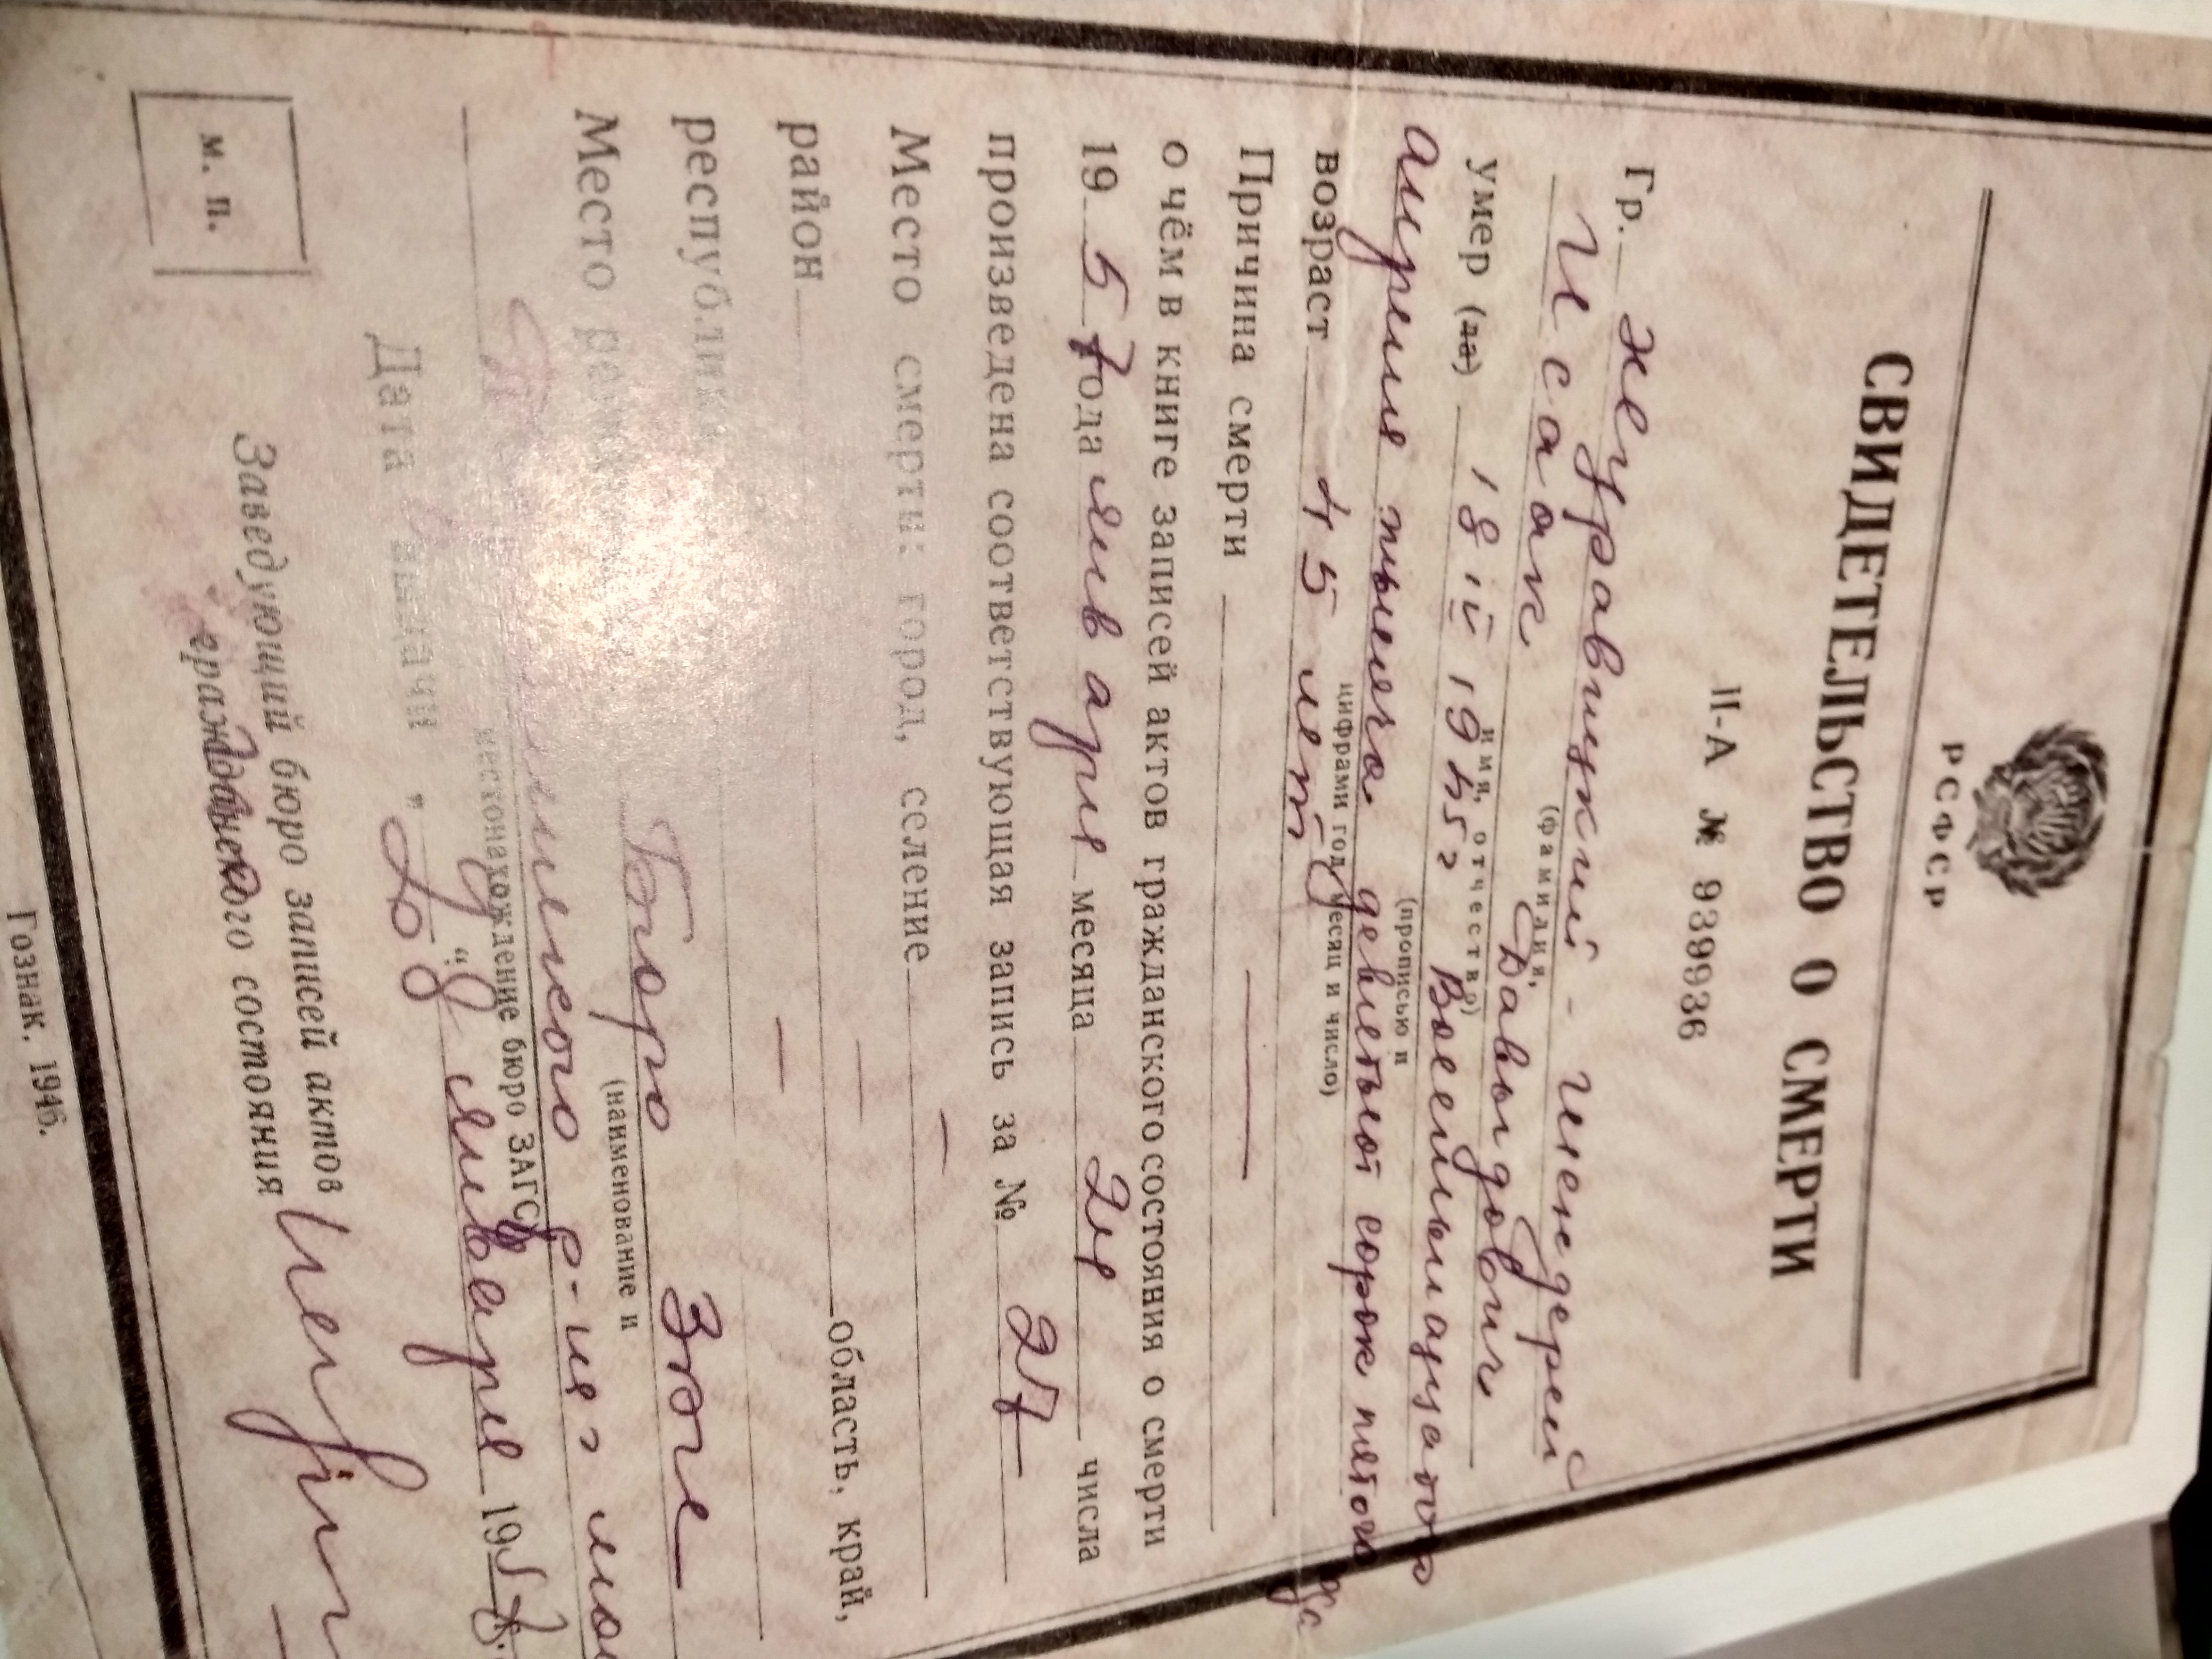 РСФСР
СВИДЕТЕЛЬСТВО О СМЕРТИ
II-А № 939936
Гр. Журавицкий -
(фамилия,
Исаак Давыдович
имя, отчество)
умер (да) 18 IV 1945г Восемьнадцатого
(прописью и
апреля тысяча девятьсот сорок пятого
цифрами год, месяц и число)
возраст 45 лет
Причина смерти —
о чём в книге записей актов гражданского состояния о смерти
19 57 года января месяца 24 числа
произведена соответствующая запись за № 27
Место смерти: город, селение —
район — область, край,
республика —
Место Бюро Загс
(наименование и
р-на г
местонахождение бюро ЗАГС)
Дата выдачи „ 28 “ января 195
Заведующий бюро записей актов
гражданского состояния
М. П.
Гознак. 1946.